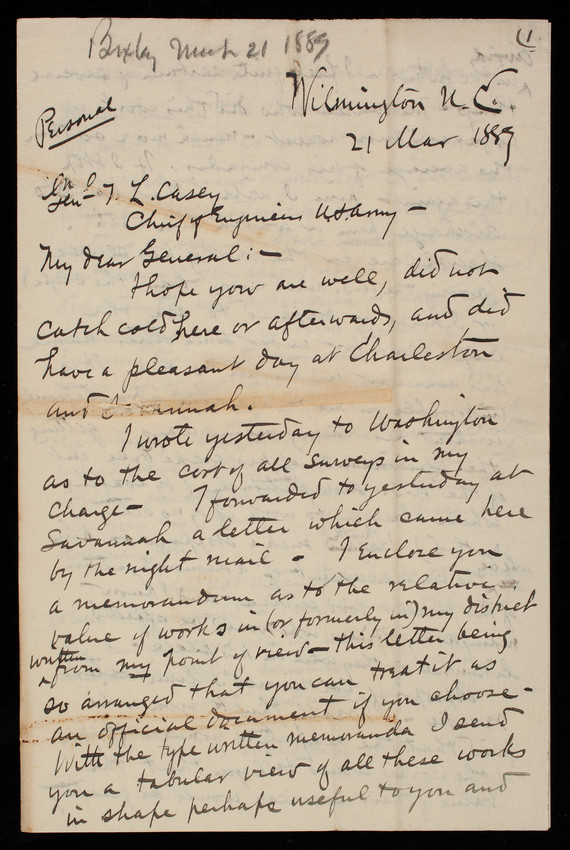 (1
Bixby Mch 21 1889
Wilmington N. C.
21 Mar 1889
Personal
Gen'l T. L. Casey
Chief of Engineers U.S. Army —
My dear General: —
I hope you are well, did not
catch cold here or afterwards, and did
have a pleasant day at Charleston
and Savannah.
I wrote yesterday to Washington
as to the cost of all surveys in my
charge — I forwarded to yesterday at
Savannah a letter which came here
by the night mail — I enclose you
a memorandum as to the relative
value of works in (or formerly in) my district
written
from my point of view — this letter being
so arranged that you can treat it as
an official document if you choose —
With the type written memoranda I send
you a tabular view of all these works
in shape perhaps useful to you and